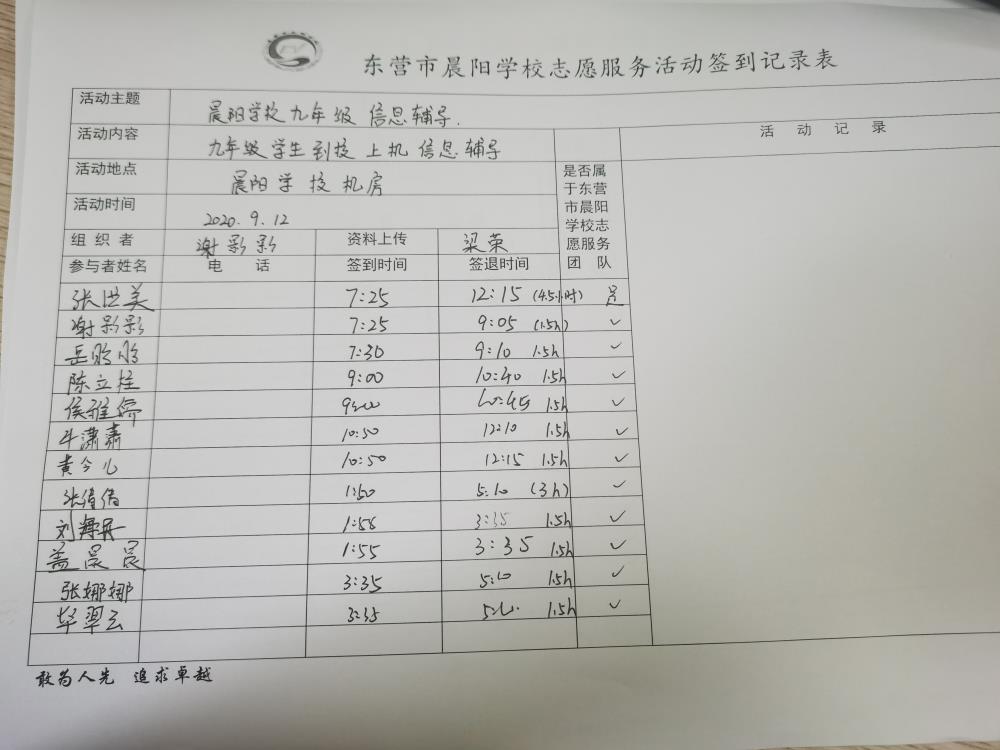 东营市晨阳学校志愿服务活动签到记录表
活动主题 晨阳学校九年级 信息辅导.
活动内容 九年级学生到校上机信息辅导 活动记录
活动地点 晨阳学校机房 是否属于东营市晨阳学校志愿服务团队
活动时间 2020.9.12
组织者 谢彩彩 资料上传 梁荣
参与者姓名 电话 签到时间 签退时间
张洪美 7:25 12:15 (4.5小时) 是
谢彩彩 7:25 9:05 (1.5h) ✓
岳盼盼 7:30 9:10 1.5h ✓
陈立柱 9:00 10:40 1.5h ✓
侯雅儒 9:00 10:45 1.5h ✓
牛潇肃 10:50 12:10 1.5h ✓
黄今儿 10:50 12:15 1.5h ✓
张倩倩 1:50 5:10 (3h) ✓
刘 1:55 3:35 1.5h ✓
盖晨晨 1:55 3:35 1.5h ✓
张娜娜 3:35 5:10 1.5h ✓
毕翠云 3:35 1.5h ✓
敢为人先 追求卓越